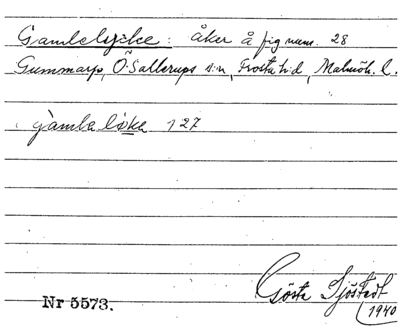 Gamlelycke: åker å fignum. 28
Gummarp, Ö. Sallerups s:n, Frosta hd, Malmöh. l.
gamla lỳka 127
Gösta Sjöstedt
1940
Nr 5573.